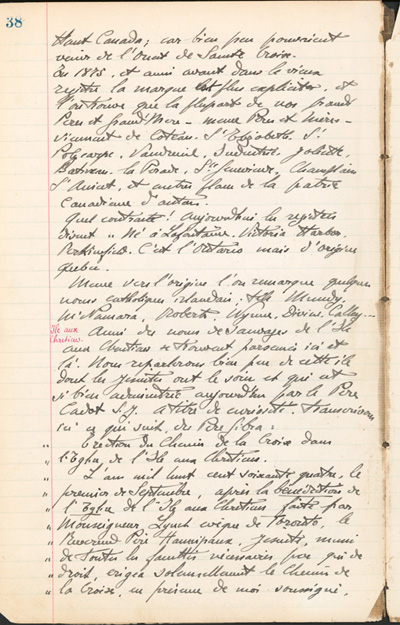 38
Haut Canada; car bien peu pouvaient
venir de l'Ouest de Sainte Croix.
En 1885, et ainsi avant dans le vieux
registre la marque est plus explicite, et
l'on trouve que la plupart de nos grand
Pères et Grand'Mère - meme Pères et mères -
viennent de Coteau. S't Elizabeth. St
Polycarpe. Vaudreuil, Industrie, Joliette,
Batiscan. la Pérade, Ste Geneviève, Champlain
St Anicet, et autres places de la patrie
Canadienne d'antan.
Quel contraste! Aujourd'hui les registres
disent " Né à Lafontaine. Victoria Harbor.
Perkinsfield. C'est l'Ontario mais d'origine
Quebec.
Meme vers l'origine l'on remarque quelques
noms catholiques irlandais, tels Mundy,
McNamara, Roberts, Wynne, Divine, Colley...
Ile aux
Chrétiens.
Aussi des noms de Sauvages de l'Ile
aux Chrétiens se trouvent parsemés ici et
là. Nous reparlerons bien peu de cette île
dont les Jésuites ont le soin et qui est
si bien administrée aujourd'hui par le Père
Cadot S.J. A titre de curiosité, transcrivons
ici ce qui suit, du
" Erection du Chemin de la Croix dans
" l'Eglise de l'Ile aux Chrétiens.
" L'an mil huit cent soixante quatre, le
" premier de Septembre, après la bénédiction de
" l'Eglise de l'Ile aux Chrétiens faite par
" Monseigneur Lynch évêque de Toronto, le
" Révérend Père Hanipaux, Jésuite, muni
" de toutes les facultés nécessaires par qui de
" droit, érigea solennellement le Chemin de
" la Croix, en présence de moi soussigné,